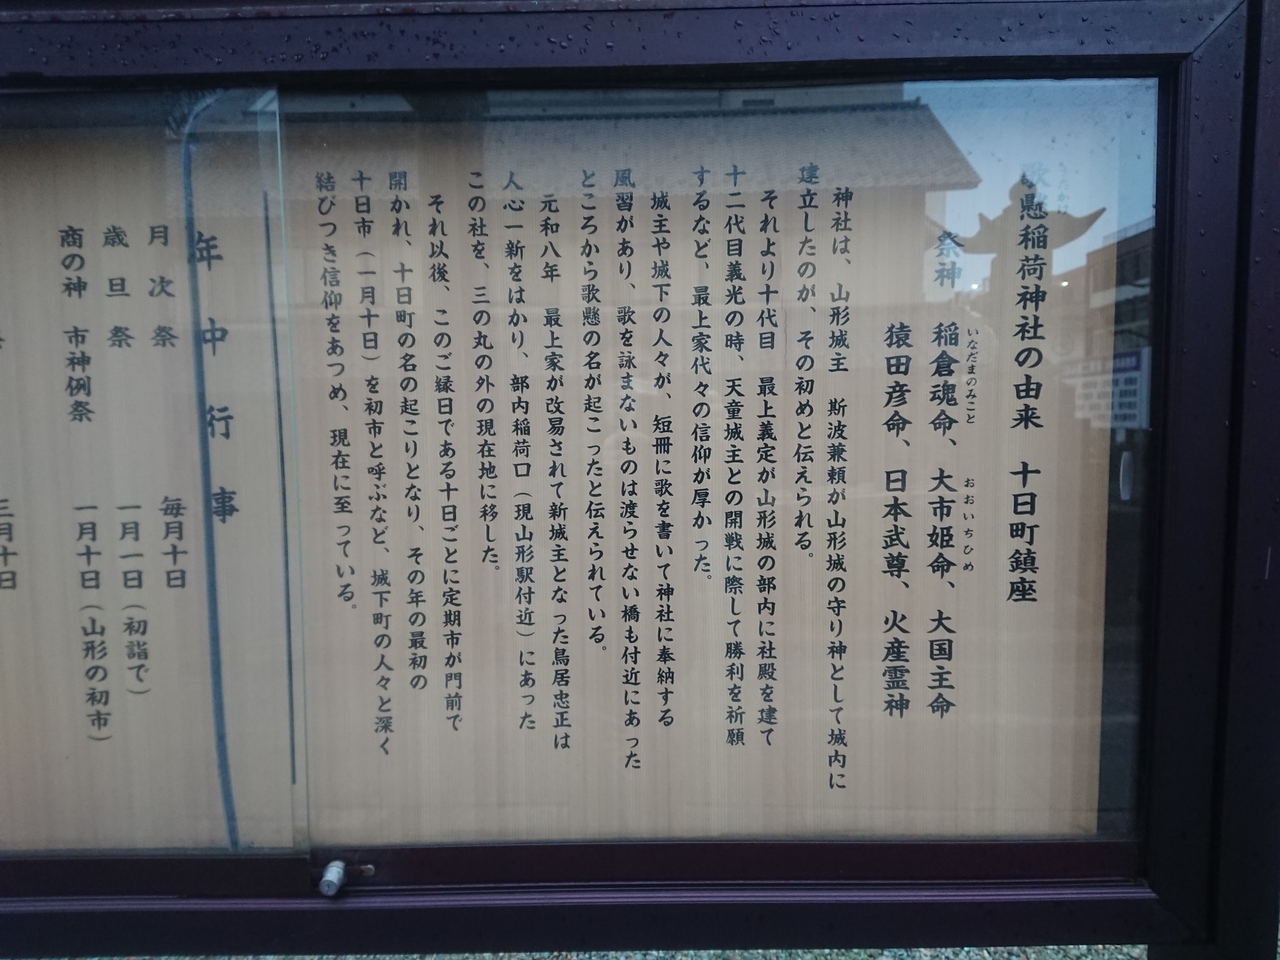 歌懸稲荷神社の由来　十日町鎮座
うたかけ
祭神　稲倉魂命、大市姫命、大国主命
いなだまのみこと　おおいちひめ
猿田彦命、日本武尊、火産霊神
神社は、山形城主　斯波兼頼が山形城の守り神として城内に
建立したのが、その初めと伝えられる。
それより十代目　最上義定が山形城の部内に社殿を建て
十二代目義光の時、天童城主との開戦に際して勝利を祈願
するなど、最上家代々の信仰が厚かった。
城主や城下の人々が、短冊に歌を書いて神社に奉納する
風習があり、歌を詠まないものは渡らせない橋も付近にあった
ところから歌懸の名が起こったと伝えられている。
元和八年　最上家が改易されて新城主となった鳥居忠正は
人心一新をはかり、部内稲荷口（現山形駅付近）にあった
この社を、三の丸の外の現在地に移した。
それ以後、このご縁日である十日ごとに定期市が門前で
開かれ、十日町の名の起こりとなり、その年の最初の
十日市（一月十日）を初市と呼ぶなど、城下町の人々と深く
結びつき信仰をあつめ、現在に至っている。
年中行事
月次祭　毎月十日
歳旦祭　一月一日（初詣で）
商の神　市神例祭　一月十日（山形の初市）
三月十日